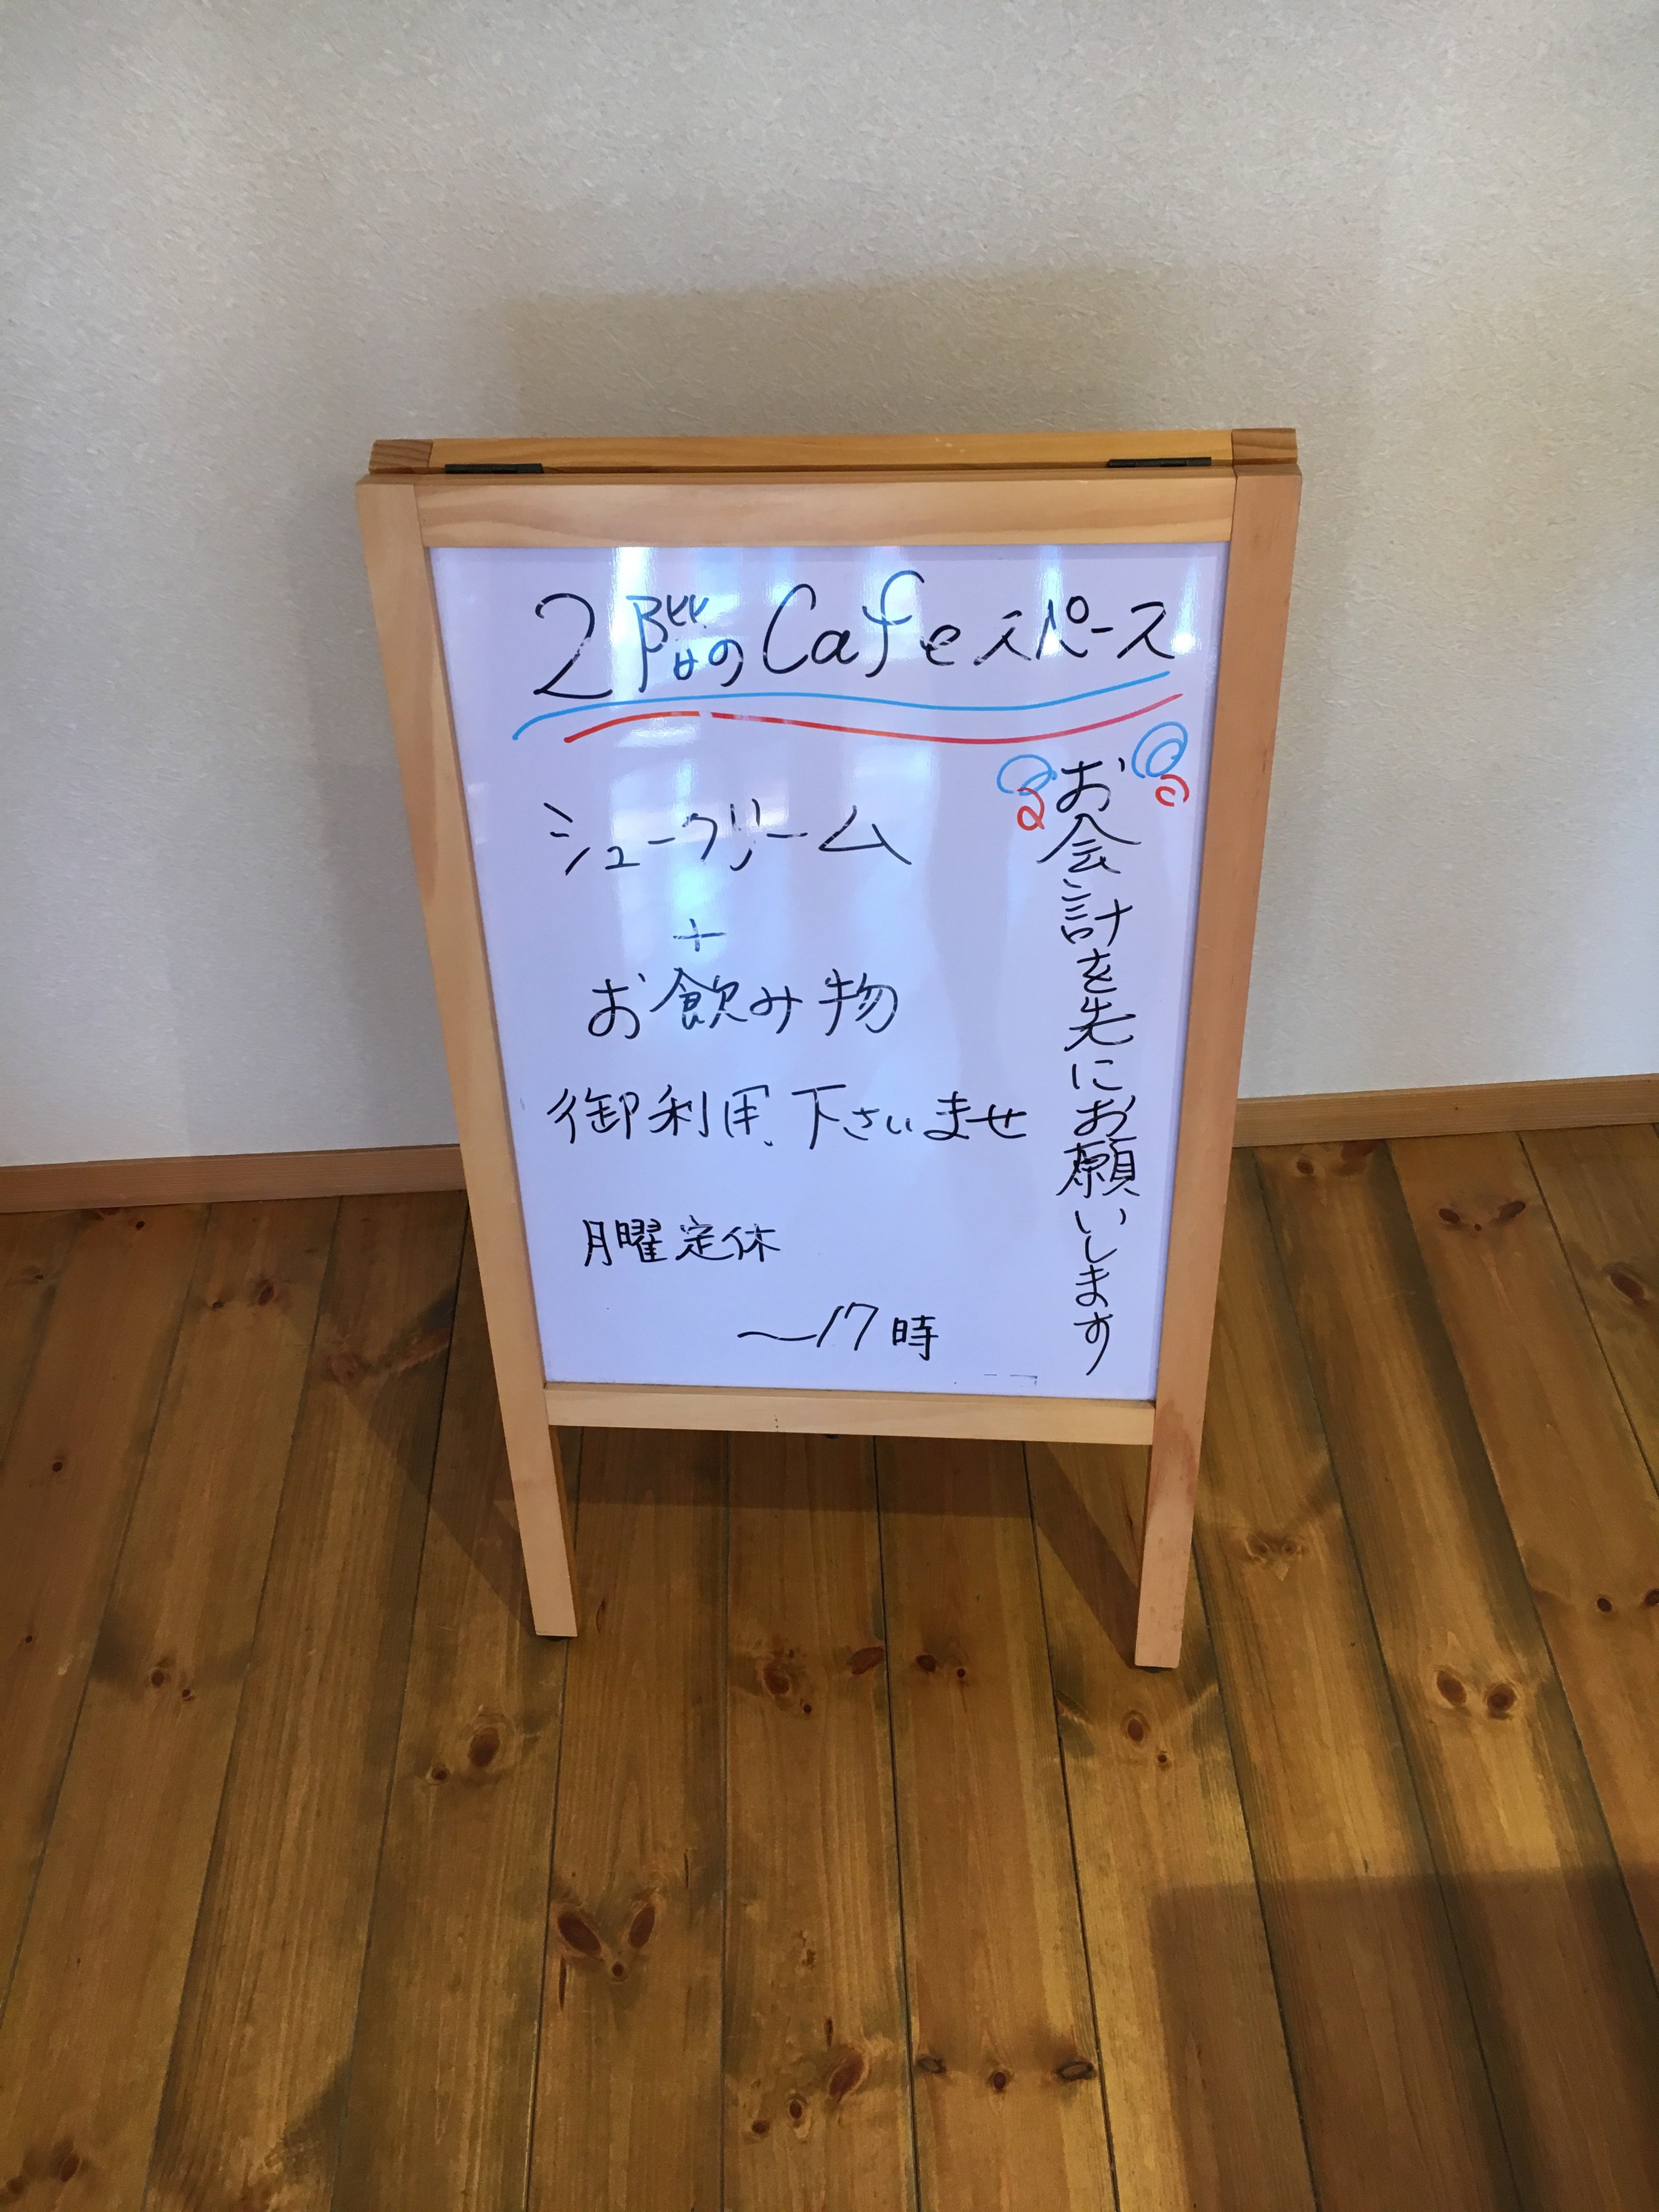 2階のCafeスペース
シュークリーム
+
お飲み物
御利用下さいませ
月曜定休
〜17時
お会計を先にお願いします